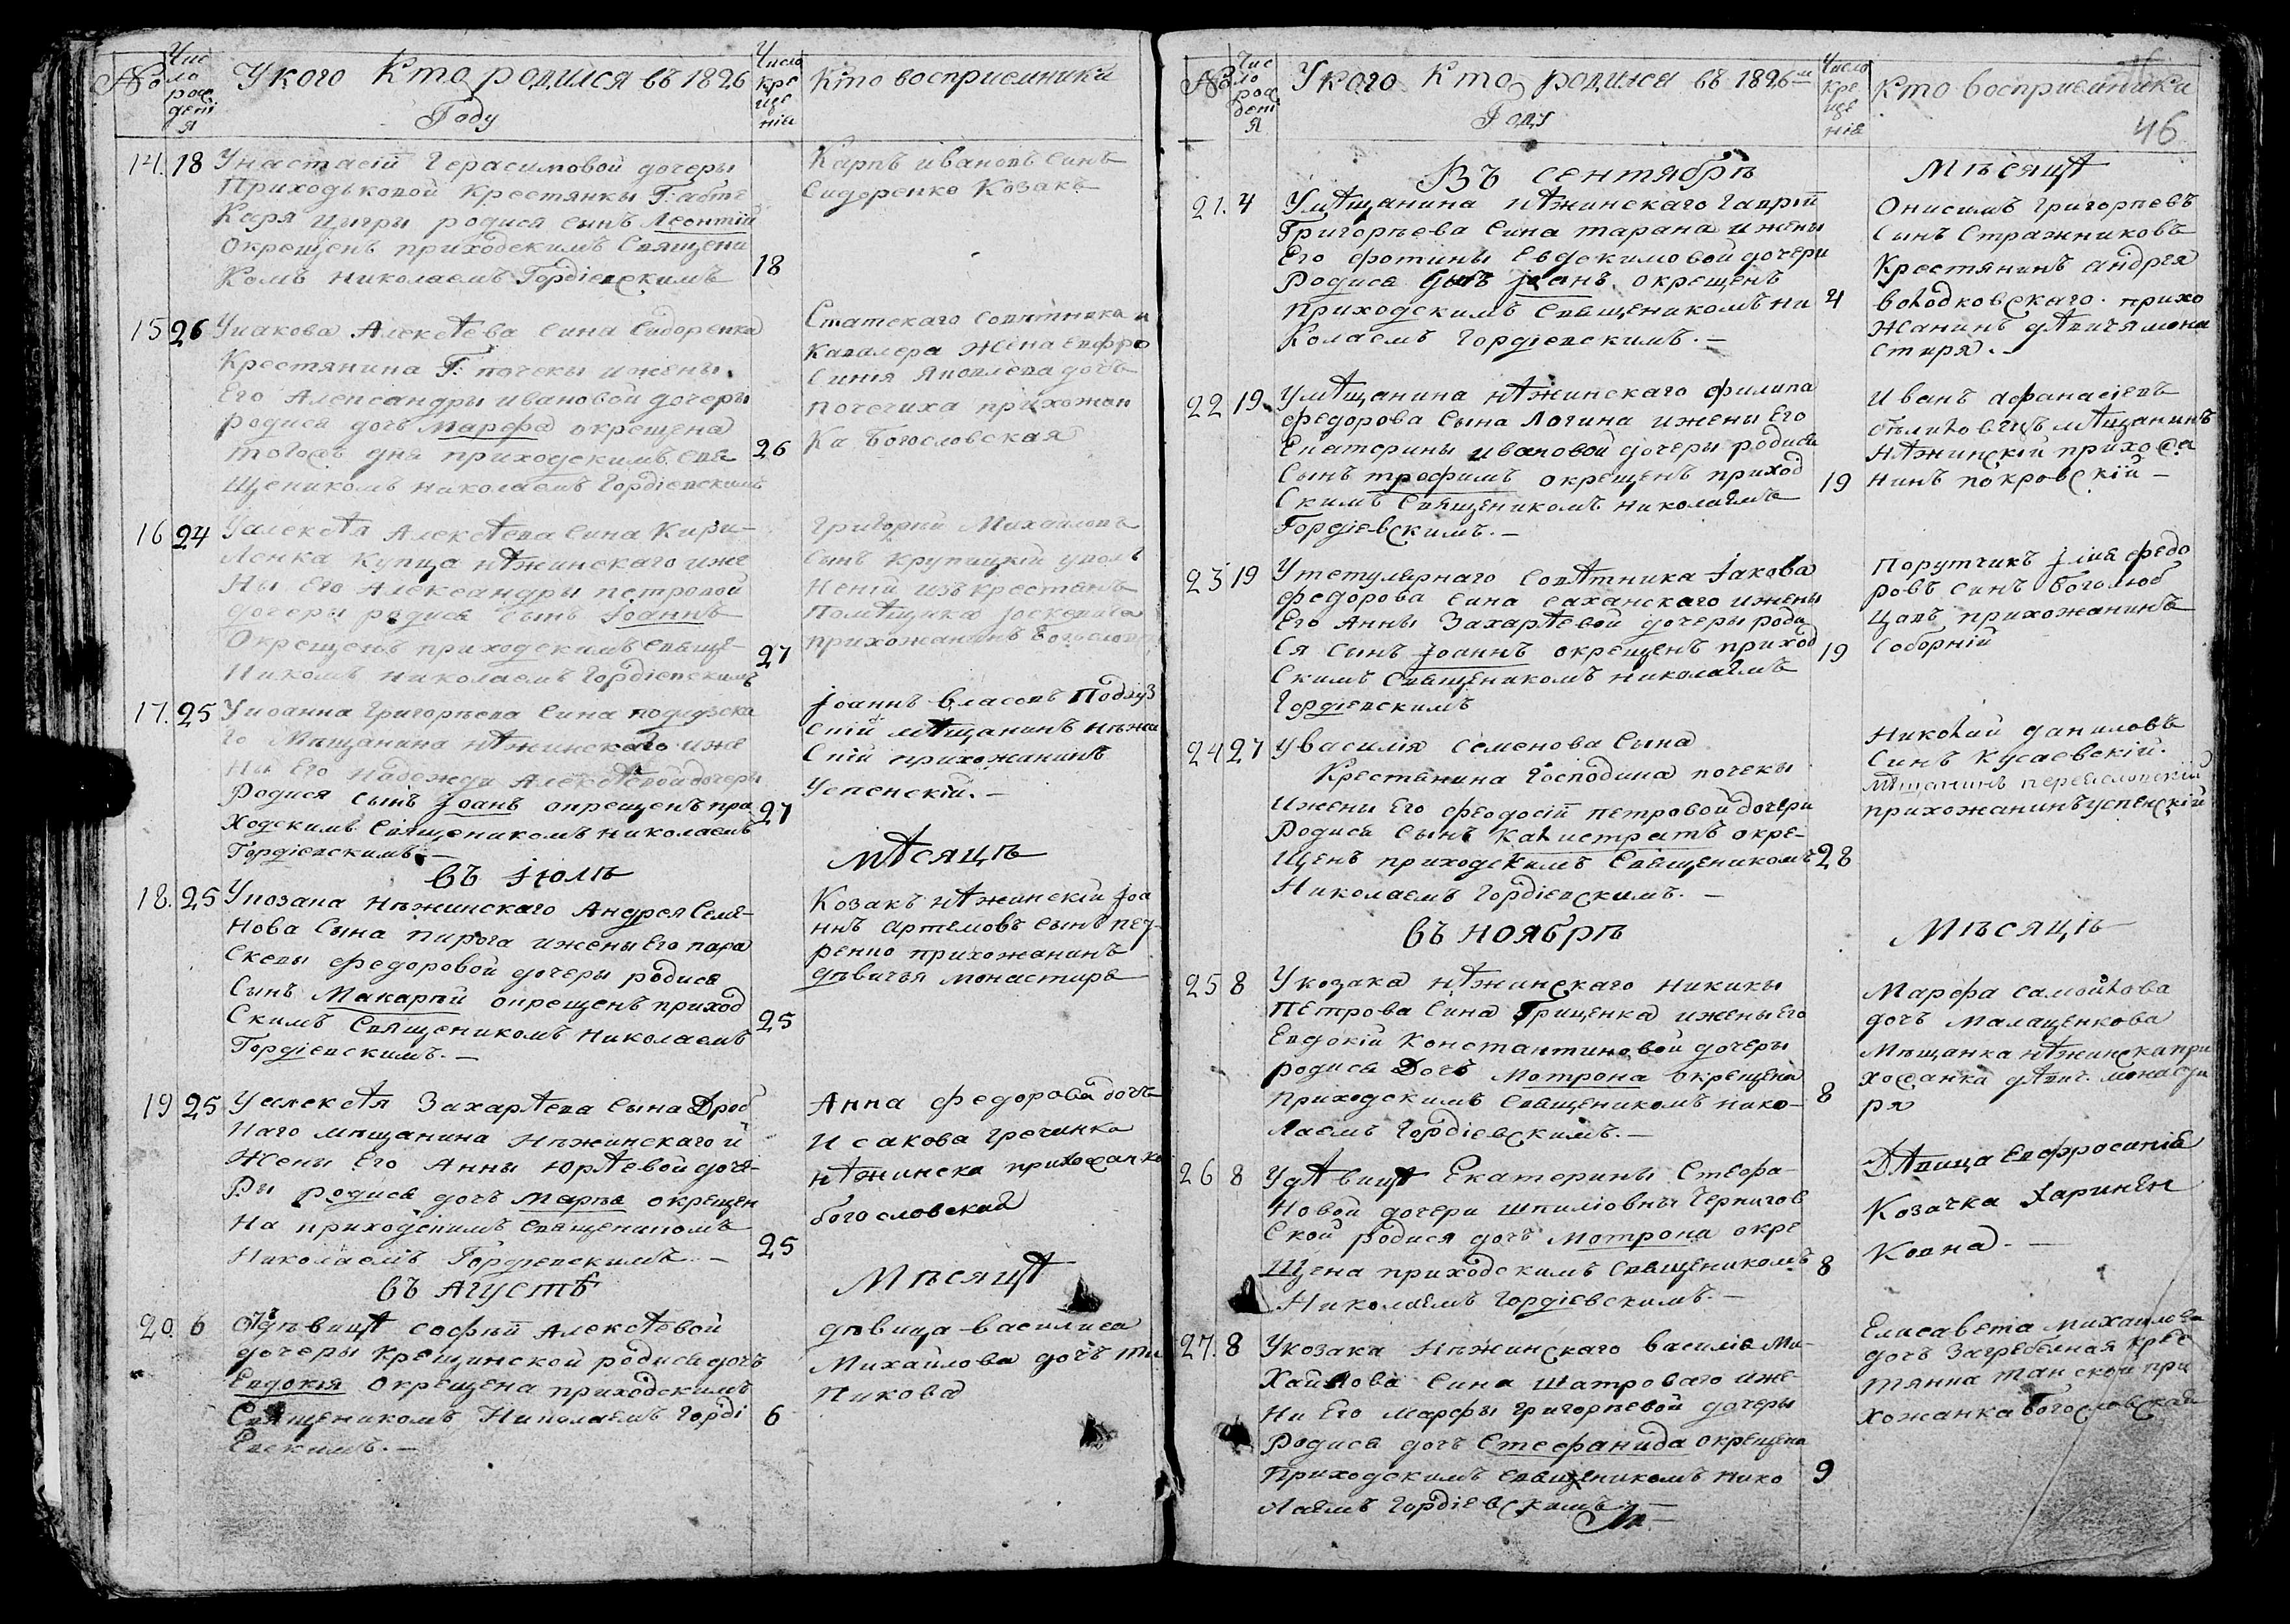 №
Чис
ло
рож
дені
я
У кого Кто родился въ 1826
Году
Число
кре
ще
нія
Кто восприемники
14. 18 У настасіи Герасимовой дочеры
Приходьковой Крестянки Г:
родися сынъ Леонтій
Окрещенъ приходскимъ Священи
Комъ Николаемъ Гордіевскимъ
18
Карпъ ивановъ Синъ
Сидоренко Козакъ
15 26 У иакова Алексѣева Сина Сидоренка
Крестянина Г: почеки и жены
Его Александры ивановой дочеры
родися дочъ Марфа окрещена
тогожъ дня приходскимъ Свя
Щеникомъ Николаемъ Гордіевскимъ
26
Статскаго Советника и
Кавалера Жена евфро
Синія Яковлева дочъ
Почечиха прихожан
Ка Богословская
16 24 У алексѣя Алексѣева Сина Кири-
Ленка Купца нѣжинскаго и же
Ны Его Александры петровой
дочеры родися Сынъ Іоаннъ
Окрещенъ приходскимъ Свяще-
Никомъ Николаемъ Гордіевскимъ
27
Григорій Михайловъ
Сынъ Крупицкій уволь
Неній изъ Крестянъ
Помѣщика
прихожанинъ Богословс
17. 25 У иоанна Григорьева Сина подгузска
Го Мѣщанина нѣжинскаго и же
Ны Его Надежди Алексѣевой дочеры
Родися Сынъ Іоанъ окрещенъ при
Ходскимъ Священикомъ Николаемъ
Гордіевскимъ. —
27
Іоаннъ Власовъ Подгуз
Скій мѣщанинъ нѣжи
Скій прихожанинъ
Успенскій. —
въ Іюлѣ мѣсяцѣ
18. 25 У козака Нѣжинскаго Андрея Семе-
Нова Сына пирога и жены Его пара
Скевы Федоровой дочеры родися
Сынъ Макарій окрещенъ приход
Скимъ Священикомъ Николаемъ
Гордіевскимъ. —
25
Козакъ нѣжинскій Іоа
ннъ Артемовъ Сынъ
ренко прихожанинъ
дѣвичья монастиря
19 25 У алексѣя Захарѣева Сына Дроб
Наго мѣщанина Нѣжинскаго и
Жены Его Анны Юрѣевой доче-
Ры родися дочъ Марѣа окрещен
На приходскимъ Священикомъ
Николаемъ Гордіевскимъ —
25
Анна Федорова дочъ
Исакова Гречинка
нѣжинска прихожанка
богословская
въ Августѣ Мѣсяцѣ
20. 6 У дѣвицѣ Софѣи Алексѣевой
дочеры Крещинской родися дочъ
Евдокія Окрещена приходскимъ
Священикомъ Николаемъ Горді
Евскимъ. —
6
дѣвица василиса
Михайлова дочъ
Никова
№
Чис
ло
рож
дені
я
У кого Кто родился въ 1826м
Году
Число
Кре
ще
нія
Кто восприемники
46
Въ сентябрѣ Мѣсяцѣ
21. 4 У мѣщанина нѣжинскаго Гавріи
Григорьева Сина тарана и жены
Его Фотины Евдокимовой дочери
Родися Сынъ Іоанъ окрещенъ
приходскимъ Священикомъ Ни
Колаемъ Гордіевскимъ. —
4
Онисимъ Григорьевъ
Сынъ Стражниковъ
Крестянинъ андрея
володковскаго прихо
Жанинъ дѣвичя мона
Стиря.
22 19. У мѣщанина нѣжинскаго Филипа
Федорова Сына Логина и жены Его
Екатерины ивановой дочеры родися
Сынъ трофимъ окрещенъ приход
Скимъ Священикомъ Николаемъ
Гордіевскимъ. —
19
Иванъ афанасіевъ
мѣщанинъ
Нѣжинскій прихожа
нинъ покровскій —
23 19 У тетулярнаго Совѣтника Іакова
Федорова Сина Саханскаго и жены
Его Анны Захарѣевой дочеры роди
Ся Сынъ Іоаннъ окрещенъ приход
Скимъ Священикомъ Николаемъ
Гордіевскимъ
19
Порутчикъ Іліа Федо
ровъ Синъ Боголюб
Цовъ прихожанинъ
Соборній
24 27 У василія Семенова Сына
Крестянина Господина почеки
И жени Его Феодосіи петровой дочери
Родися Сынъ Калистратъ окре-
Щенъ приходскимъ Священикомъ
Николаемъ Гордіевскимъ. —
28
Николай даниловъ
Синъ Кусаевскій.
Мѣщанинъ переяславскій
прихожанинъ успенскій
въ Ноябрѣ Мѣсяцѣ
25 8 У козака нѣжинскаго Никиты
Петрова Сина Гриценка и жены Его
Евдокіи Константиновой дочеры
родися Дочъ Мотрона окрещена
приходскимъ Священикомъ Нико-
лаемъ Гордіевскимъ. —
8
Марфа Самойлова
дочъ Малащенкова
Мѣщанка нѣжинска при
хожанка дѣвич. монасти
ря
26 8 У дѣвицѣ Екатерины Стефа-
Новой дочери Шпиліовны Чернигов
Ской родися дочъ Мотрона окре
Щена приходскимъ Священикомъ
Николаемъ Гордіевскимъ. —
8
Дѣвица Евфросинія
Козачка Харинен
Ковна. —
27. 8 У козака Нѣжинскаго василія Ми-
Хайлова Сина Шатроваго и же-
Ни Его Марфы Григорьевой дочеры
Родися дочъ Стефанида окрещена
Приходскимъ Священикомъ Нико
Лаемъ Гордіевскимъ —
9
Елисавета Михайлова
дочъ Загребелная Крес
тянка при
Хожанка Богословская